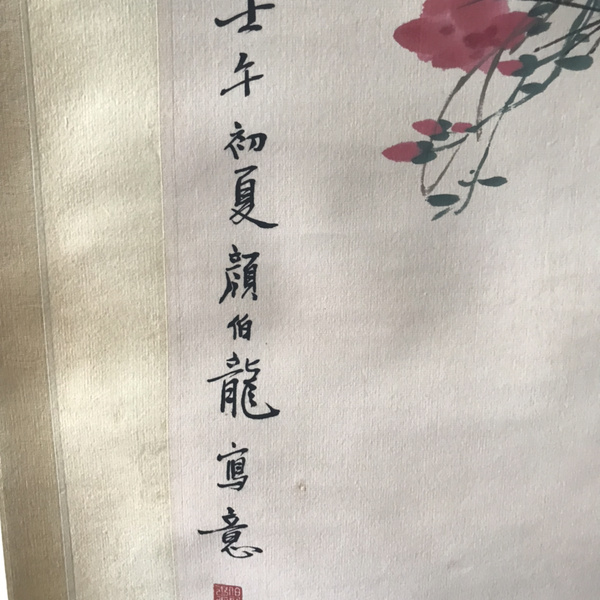 壬午初夏顏伯龍寫意